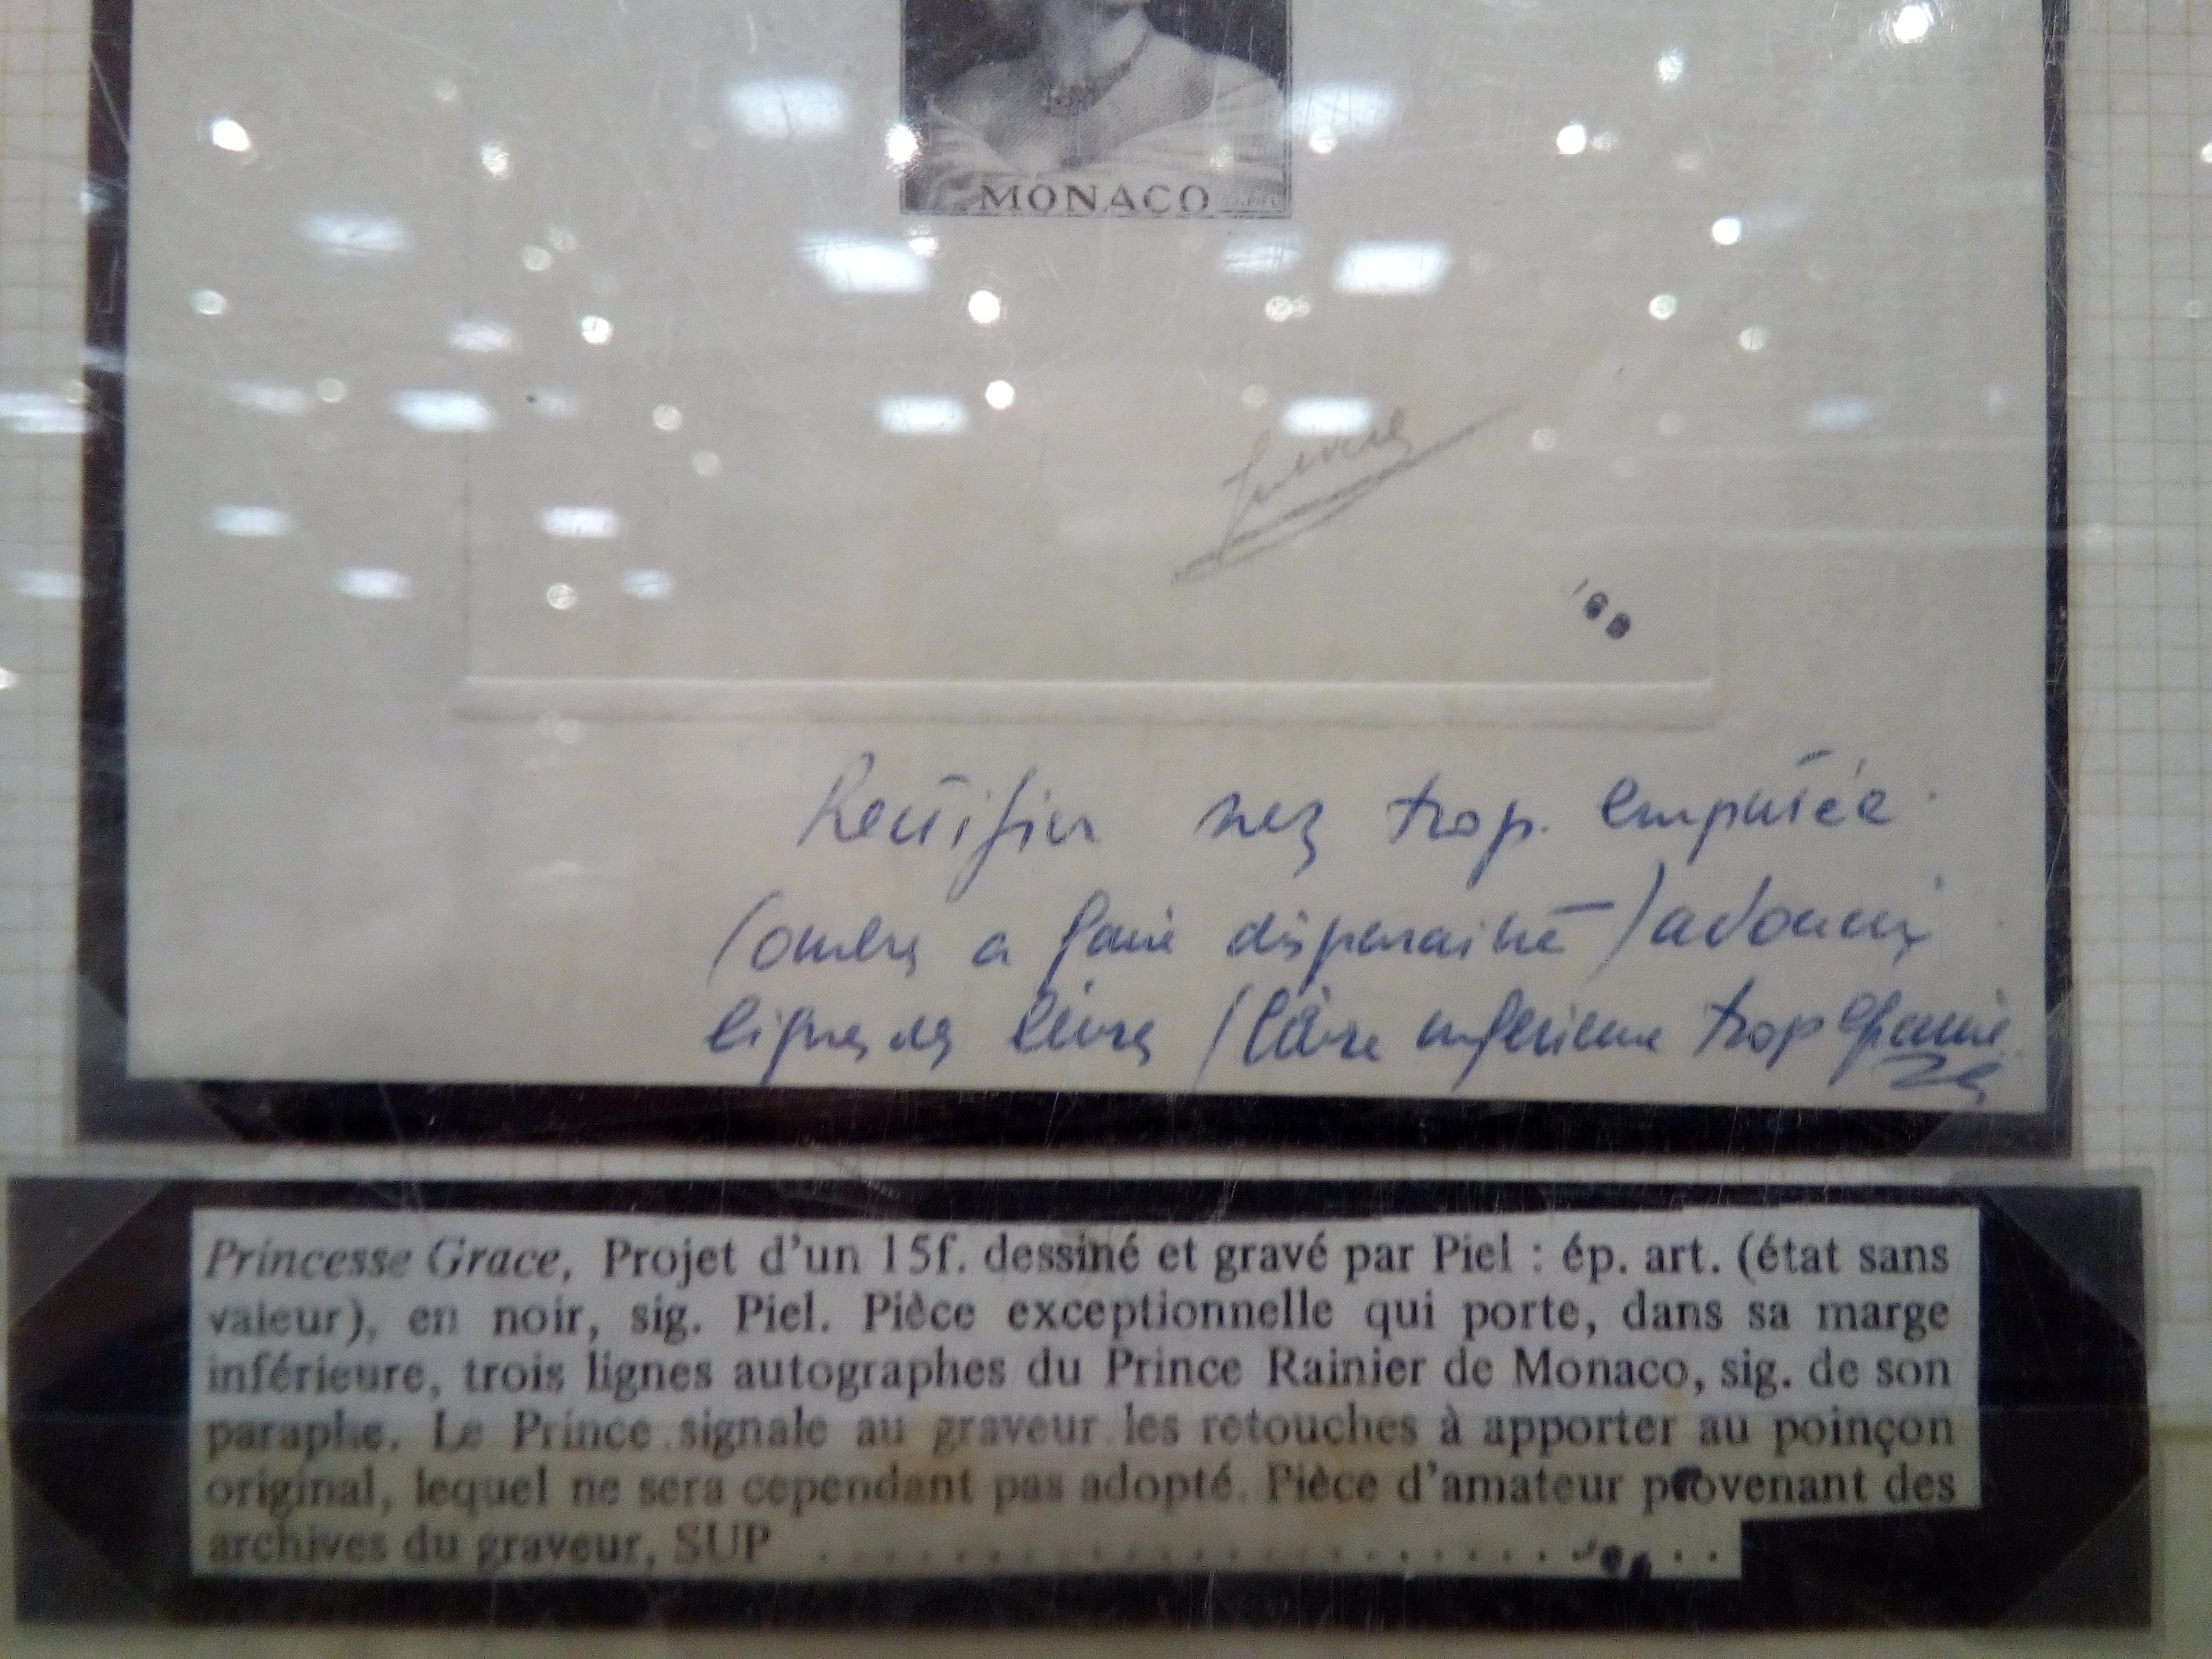 MONACO
Rectifier nez trop empatée
(ombre a faire disparaitre) adoucir
lignes des lèvres (lèvre inferieure trop
Princesse Grace, Projet d'un 15f. dessiné et gravé par Piel : ép. art. (état sans
valeur), en noir, sig. Piel. Pièce exceptionnelle qui porte, dans sa marge
inférieure, trois lignes autographes du Prince Rainier de Monaco, sig. de son
paraphe. Le Prince signale au graveur les retouches à apporter au poinçon
original, lequel ne sera cependant pas adopté. Pièce d'amateur provenant des
archives du graveur, SUP